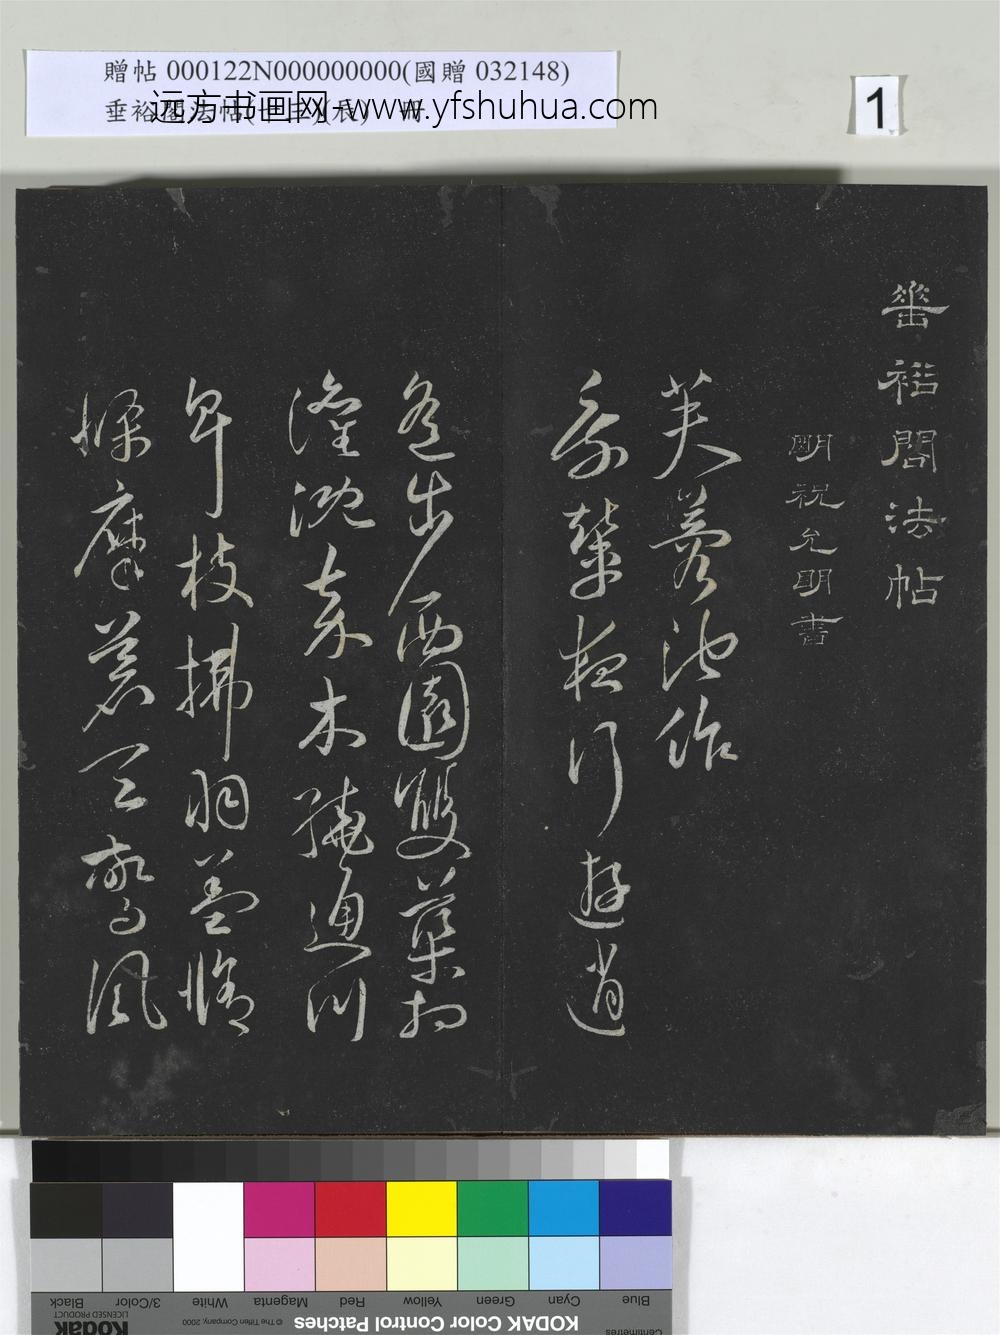 贈帖 000122N000000000(國贈 032148)
垂裕閣法帖
远方书画网-www.yfshuhua.com
1
垂裕閣法帖
明祝允明書
芙蓉池作
乘輦夜行遊逍
遙步西園雙渠相
灌溉嘉木繞通川
卑枝拂羽蓋脩
條摩蒼天驚風
Blue Cyan Green Yellow Red Magenta White 3/Color Black
KODAK Color Control Patches
© The Tiffen Company, 2000
Kodak
LICENSED PRODUCT
Centimetres